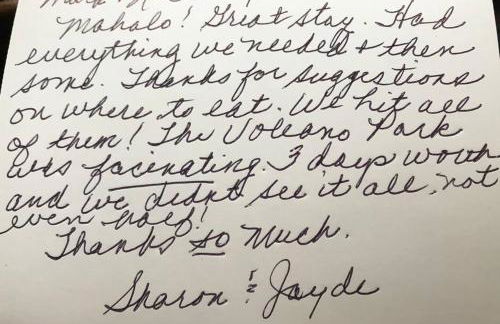 Mahalo! Great stay. Had
everything we needed & then
some. Thanks for suggestions
on where to eat. We hit all
of them! The Volcano Park
was facinating. 3 days worth
and we didnt see it all, not
even half!
Thanks so much.
Sharon & Jayde